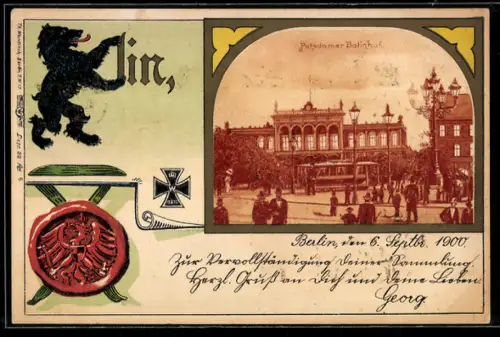 lin,
Potsdamer Bahnhof.
Berlin, den 6. Septbr. 1900.
Zur Vervollständigung Deiner Sammlung.
Herzl. Gruß an Dich und deine Lieben
Georg